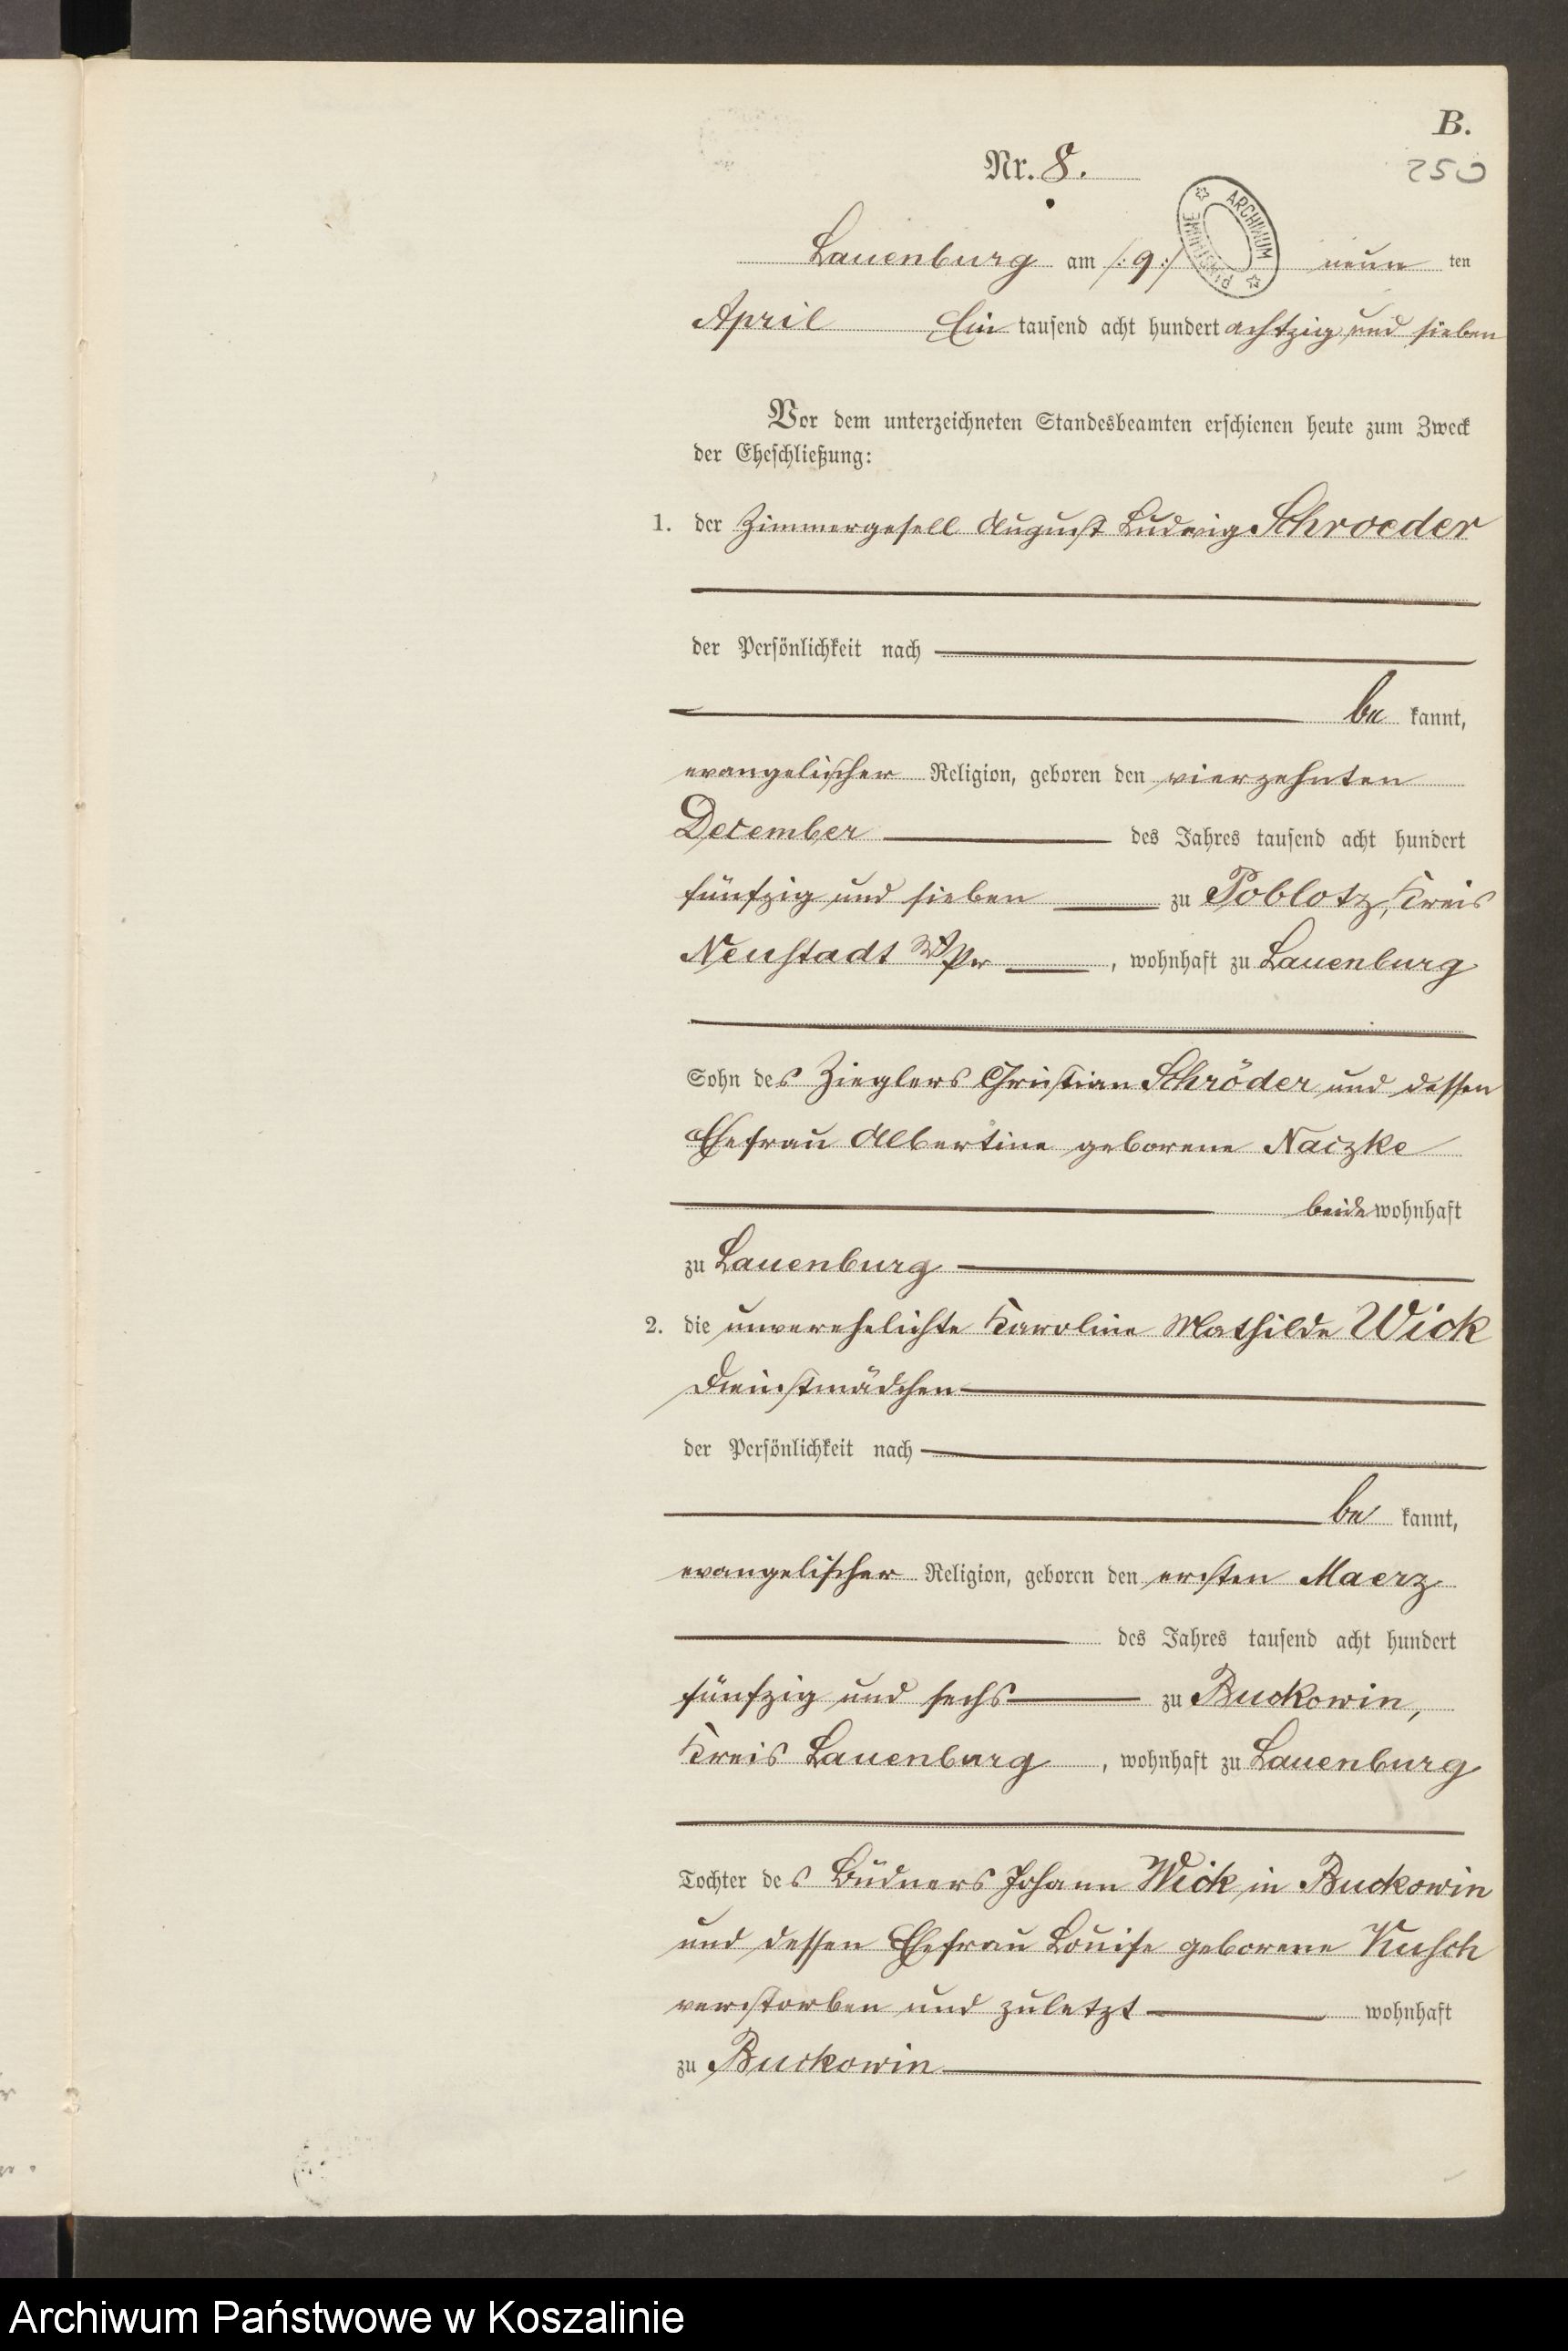 B.
Nr. 8.
250
ARCHIWUM PAŃSTWOWE
Lauenburg am /:9:/ neun ten
April Ein tausend acht hundert achtzig und sieben
Vor dem unterzeichneten Standesbeamten erschienen heute zum Zweck
der Eheschließung:
1. der Zimmergesell August Ludwig Schroeder
der Persönlichkeit nach
be kannt,
evangelischer Religion, geboren den vierzehnten
December des Jahres tausend acht hundert
fünfzig und sieben zu Poblotz, Kreis
Neustadt WPr, wohnhaft zu Lauenburg
Sohn des Zieglers Christian Schröder und dessen
Ehefrau Albertine geborene Naczke
beide wohnhaft
zu Lauenburg
2. die unverehelichte Karoline Mathilde Wick
Dienstmädchen
der Persönlichkeit nach
be kannt,
evangelischer Religion, geboren den ersten Maerz
des Jahres tausend acht hundert
fünfzig und sechs zu Buckowin,
Kreis Lauenburg, wohnhaft zu Lauenburg
Tochter des Büdners Johann Wick in Buckowin
und dessen Ehefrau Louise geborene Kusch
verstorben und zuletzt wohnhaft
zu Buckowin
Archiwum Państwowe w Koszalinie